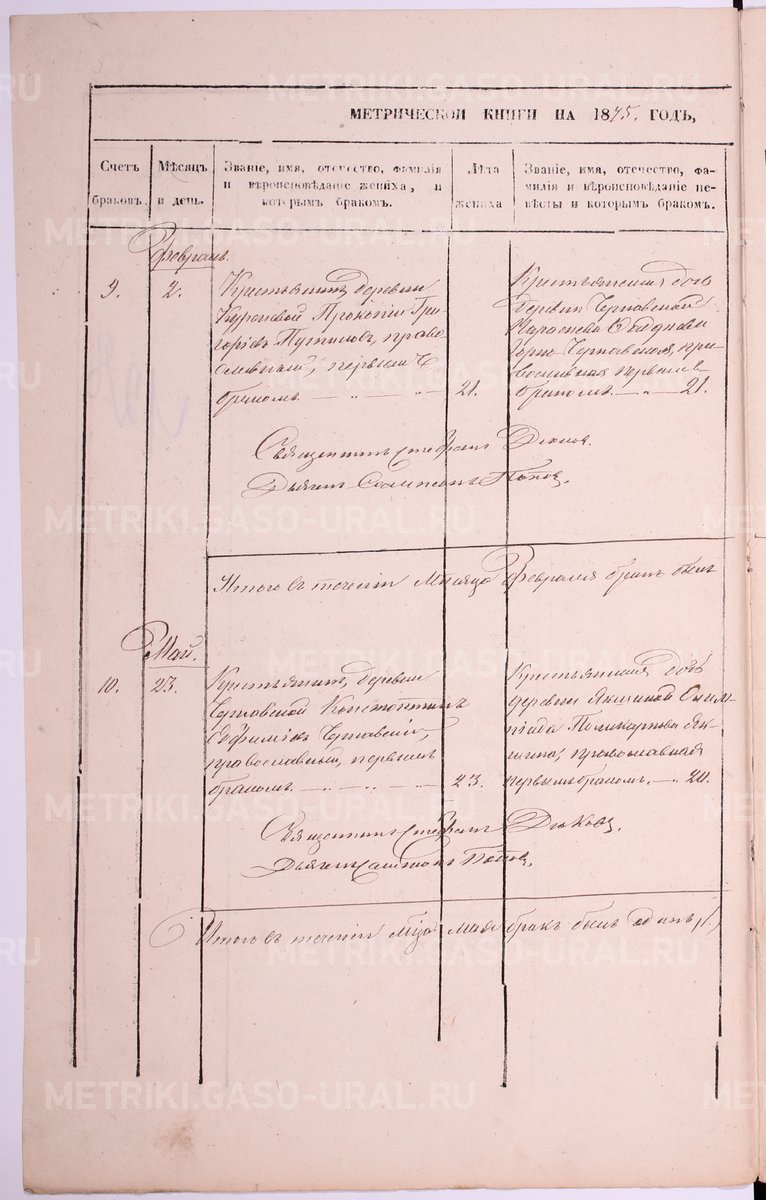 МЕТРИЧЕСКОЙ КНИГИ НА 1875. ГОДЪ,
Счетъ браковъ.
Мѣсяцъ и день.
Званіе, имя, отечество, фамилія
и вѣроисповѣданіе жениха, и
которымъ бракомъ.
Лѣта
жениха
Званіе, имя, отечество, фа-
милія и вѣроисповѣданіе не-
вѣсты и которымъ бракомъ.
Февраль.
9.
2.
Крестьянинъ деревни
Прокопій Гри-
горіевъ Путиловъ, право
славный, первымъ
бракомъ.
21.
Крестьянская дочь
деревни Чернавской
православная первымъ
бракомъ. 21.
Священникъ Стефанъ Дюковъ.
Дьячекъ Сампсонъ Поповъ.
Итого въ теченіи Мѣсяца Февраля бракъ былъ
Май.
10.
23.
Крестьянинъ деревни
Черновской Константинъ
Евфиміевъ Чернавскій,
православный, первымъ
бракомъ.
23.
Крестьянская дочь
деревни Якшиной Олим-
піада Поликарпова Як-
шина, православная
первымъ бракомъ. 20.
Священникъ Стефанъ Дюковъ,
Дьячекъ Сампсонъ Поповъ,
Итого въ теченіи мца Мая бракъ былъ одинъ /1./
METRIKI.GASO-URAL.RU